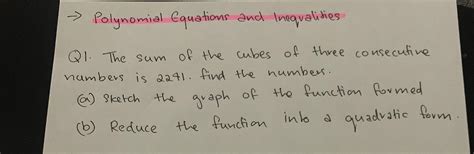 → Polynomial Equations and Inequalities
Q1. The sum of the cubes of three consecutive
numbers is 2241. find the numbers.
(a) Sketch the graph of the function formed
(b) Reduce the function into a quadratic form.